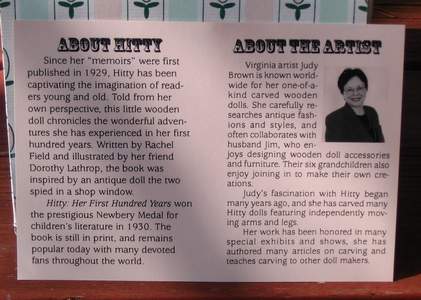 ABOUT HITTY
Since her "memoirs" were first
published in 1929, Hitty has been
captivating the imagination of read-
ers young and old. Told from her
own perspective, this little wooden
doll chronicles the wonderful adven-
tures she has experienced in her first
hundred years. Written by Rachel
Field and illustrated by her friend
Dorothy Lathrop, the book was
inspired by an antique doll the two
spied in a shop window.
Hitty: Her First Hundred Years won
the prestigious Newbery Medal for
children's literature in 1930. The
book is still in print, and remains
popular today with many devoted
fans throughout the world.
ABOUT THE ARTIST
Virginia artist Judy
Brown is known world-
wide for her one-of-a-
kind carved wooden
dolls. She carefully re-
searches antique fash-
ions and styles, and
often collaborates with
husband Jim, who en-
joys designing wooden doll accessories
and furniture. Their six grandchildren also
enjoy joining in to make their own cre-
ations.
Judy's fascination with Hitty began
many years ago, and she has carved many
Hitty dolls featuring independently mov-
ing arms and legs.
Her work has been honored in many
special exhibits and shows, she has
authored many articles on carving and
teaches carving to other doll makers.